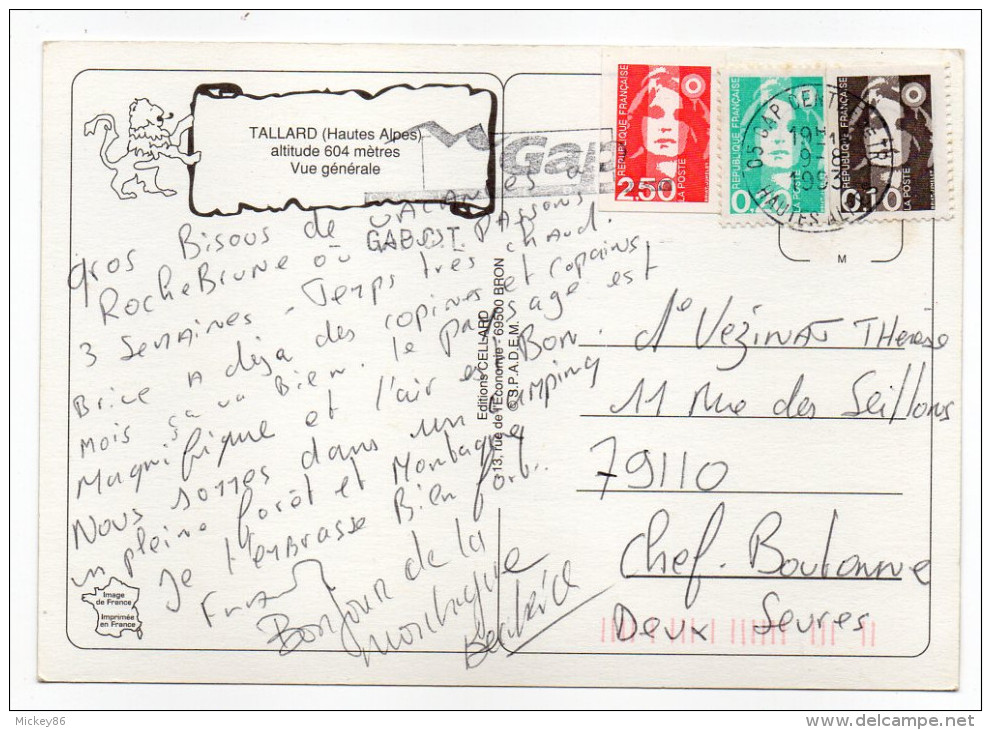 TALLARD (Hautes Alpes)
altitude 604 mètres
Vue générale
Gap
GAB
REPUBLIQUE FRANÇAISE
2,50
LA POSTE
REPUBLIQUE FRANÇAISE
0,
LA POSTE
REPUBLIQUE FRANÇAISE
0,10
LA POSTE
05 GAP
19H
9-8
1993
HAUTES ALPES
M
Gros Bisous de VACANCES à
RocheBrune où passons
3 SemAines - Temps très chaud.
Brice A déjà des copines et copains
mois ça va Bien. le paysage est
Magnifique et l'air est Bon.
Nous sommes dans un camping
en pleine forêt et Montagne
Je t'emBrasse Bien fort..
Bonjour de la
montagne
Béatrice
Editions CELLARD
13, rue de l'Economie - 69500 BRON
© S.P.A.D.E.M.
VéZINAT Thérèse
11 Rue des Seillons
79110
Chef. Boutonne
Deux Sevres
Image
de France
Imprimée
en France
Mickey86
www.delcampe.net